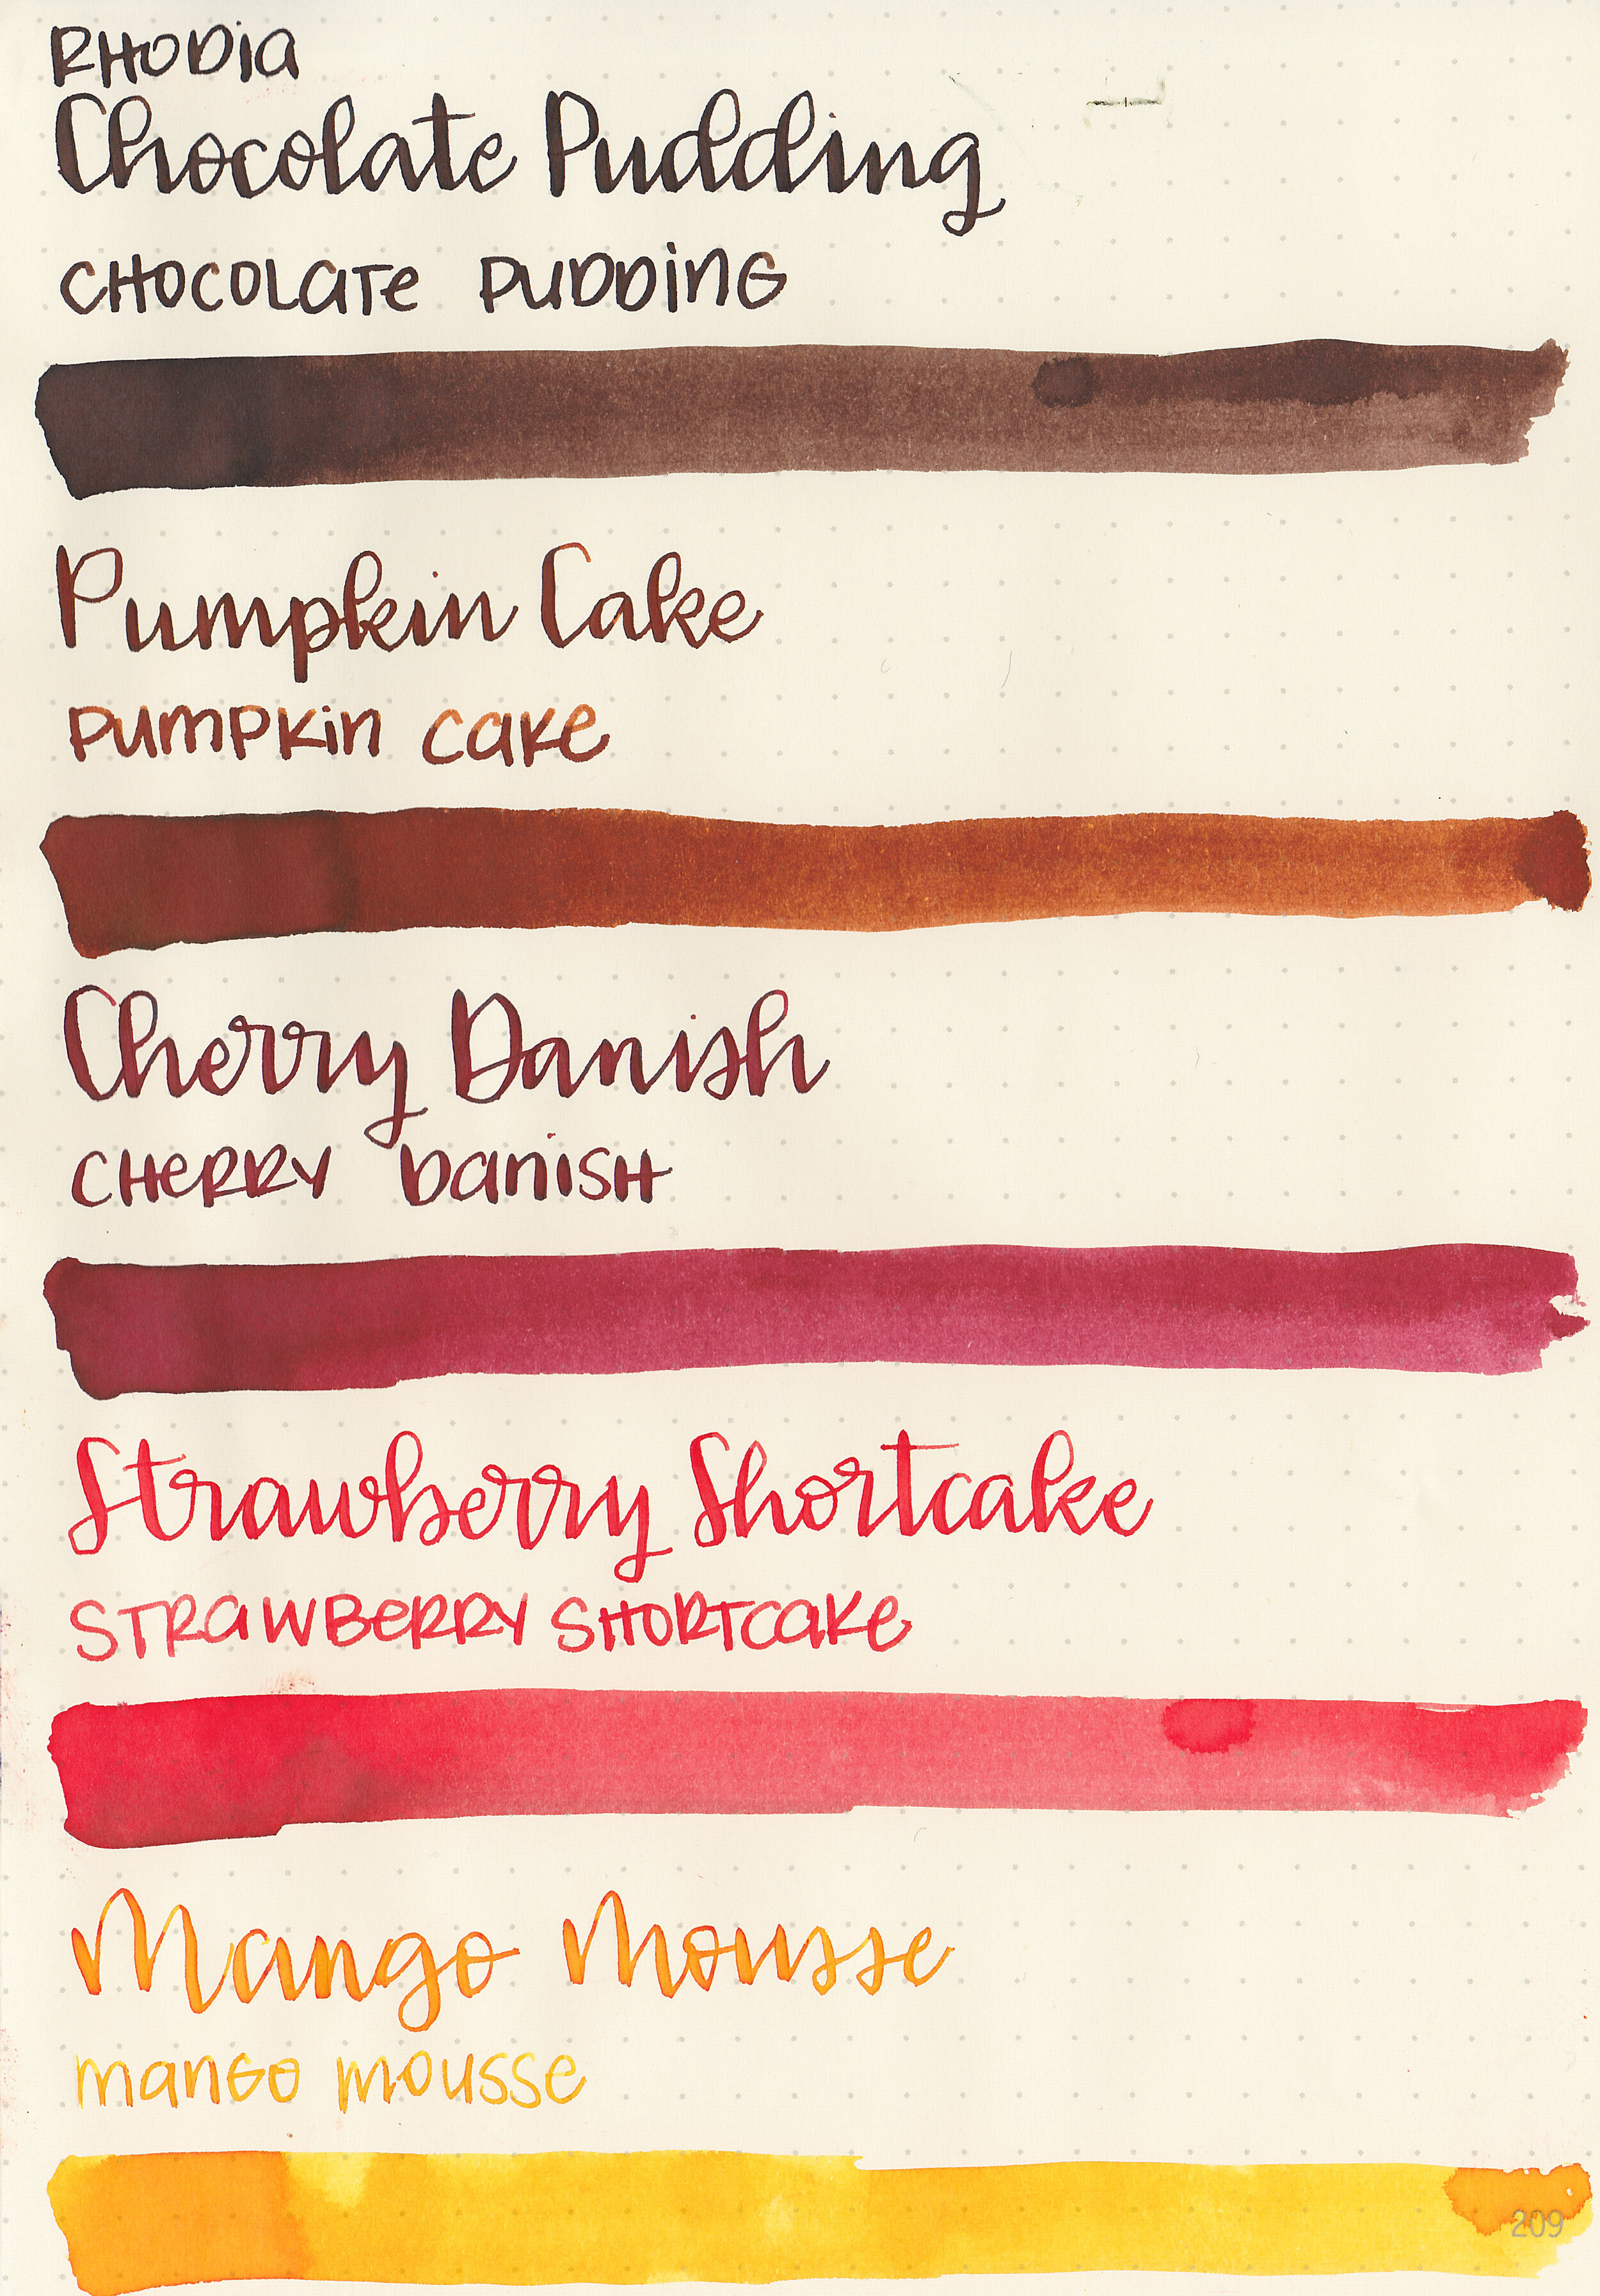 RHODIA
Chocolate Pudding
CHOCOLATE PUDDING
Pumpkin Cake
PUMPKIN CAKE
Cherry Danish
CHERRY DANISH
Strawberry Shortcake
STRAWBERRY SHORTCAKE
Mango Mousse
mango mousse
209